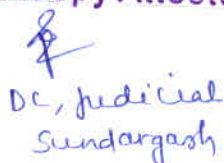 DC, Judicial
Sundargarh